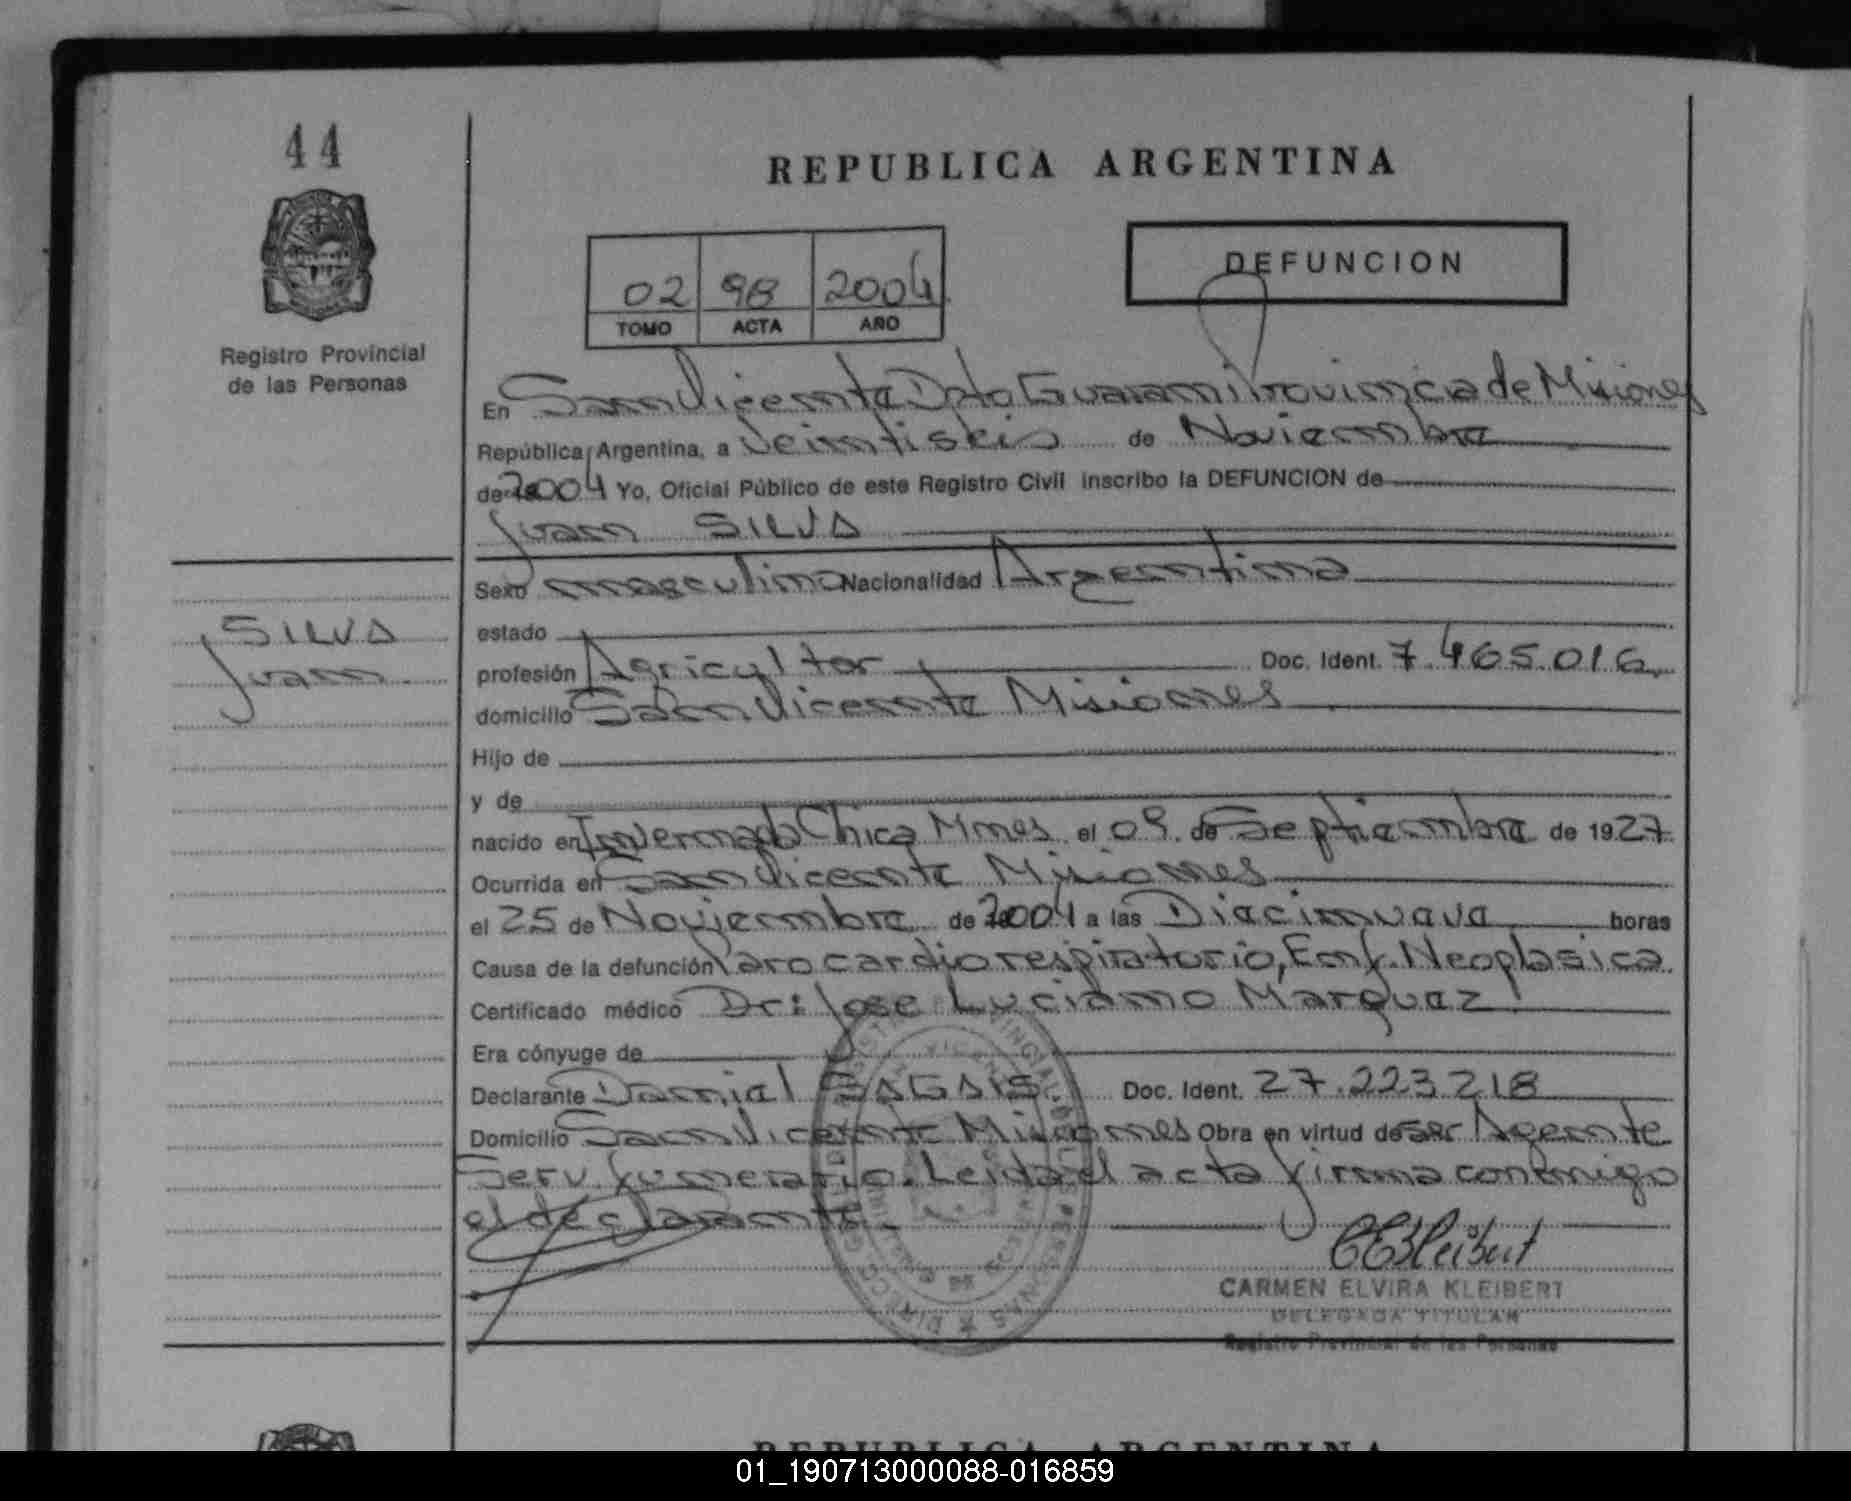 44
REPUBLICA ARGENTINA
DEFUNCION
02 98 2004
TOMO ACTA AÑO
Registro Provincial
de las Personas
En San Vicente Dpto Guarani Provincia de Misiones
República Argentina, a Veintiseis de Noviembre
de 2004 Yo, Oficial Público de este Registro Civil inscribo la DEFUNCION de
Juan SILVA
Sexo masculino Nacionalidad Argentina
SILVA
Juan
estado
profesión Agricultor Doc. Ident. 7.465.016
domicilio San Vicente Misiones
Hijo de
y de
nacido en Invernada Chica Mnes el 09 de Septiembre de 1927
Ocurrida en San Vicente Misiones
el 25 de Noviembre de 2004 a las Diecinueve horas
Causa de la defunción Paro cardiorespiratorio, Enf. Neoplasica
Certificado médico Dr: Jose Luciano Marquez
Era cónyuge de
Declarante Daniel Doc. Ident. 27.223.218
Domicilio San Vicente Misiones Obra en virtud de ser Agente
Serv. funerario. Leida el acta firma conmigo
el declarante.
CEKleibert
CARMEN ELVIRA KLEIBERT
DELEGADA TITULAR
Registro Provincial de las Personas
REPUBLICA ARGENTINA
01_190713000088-016859